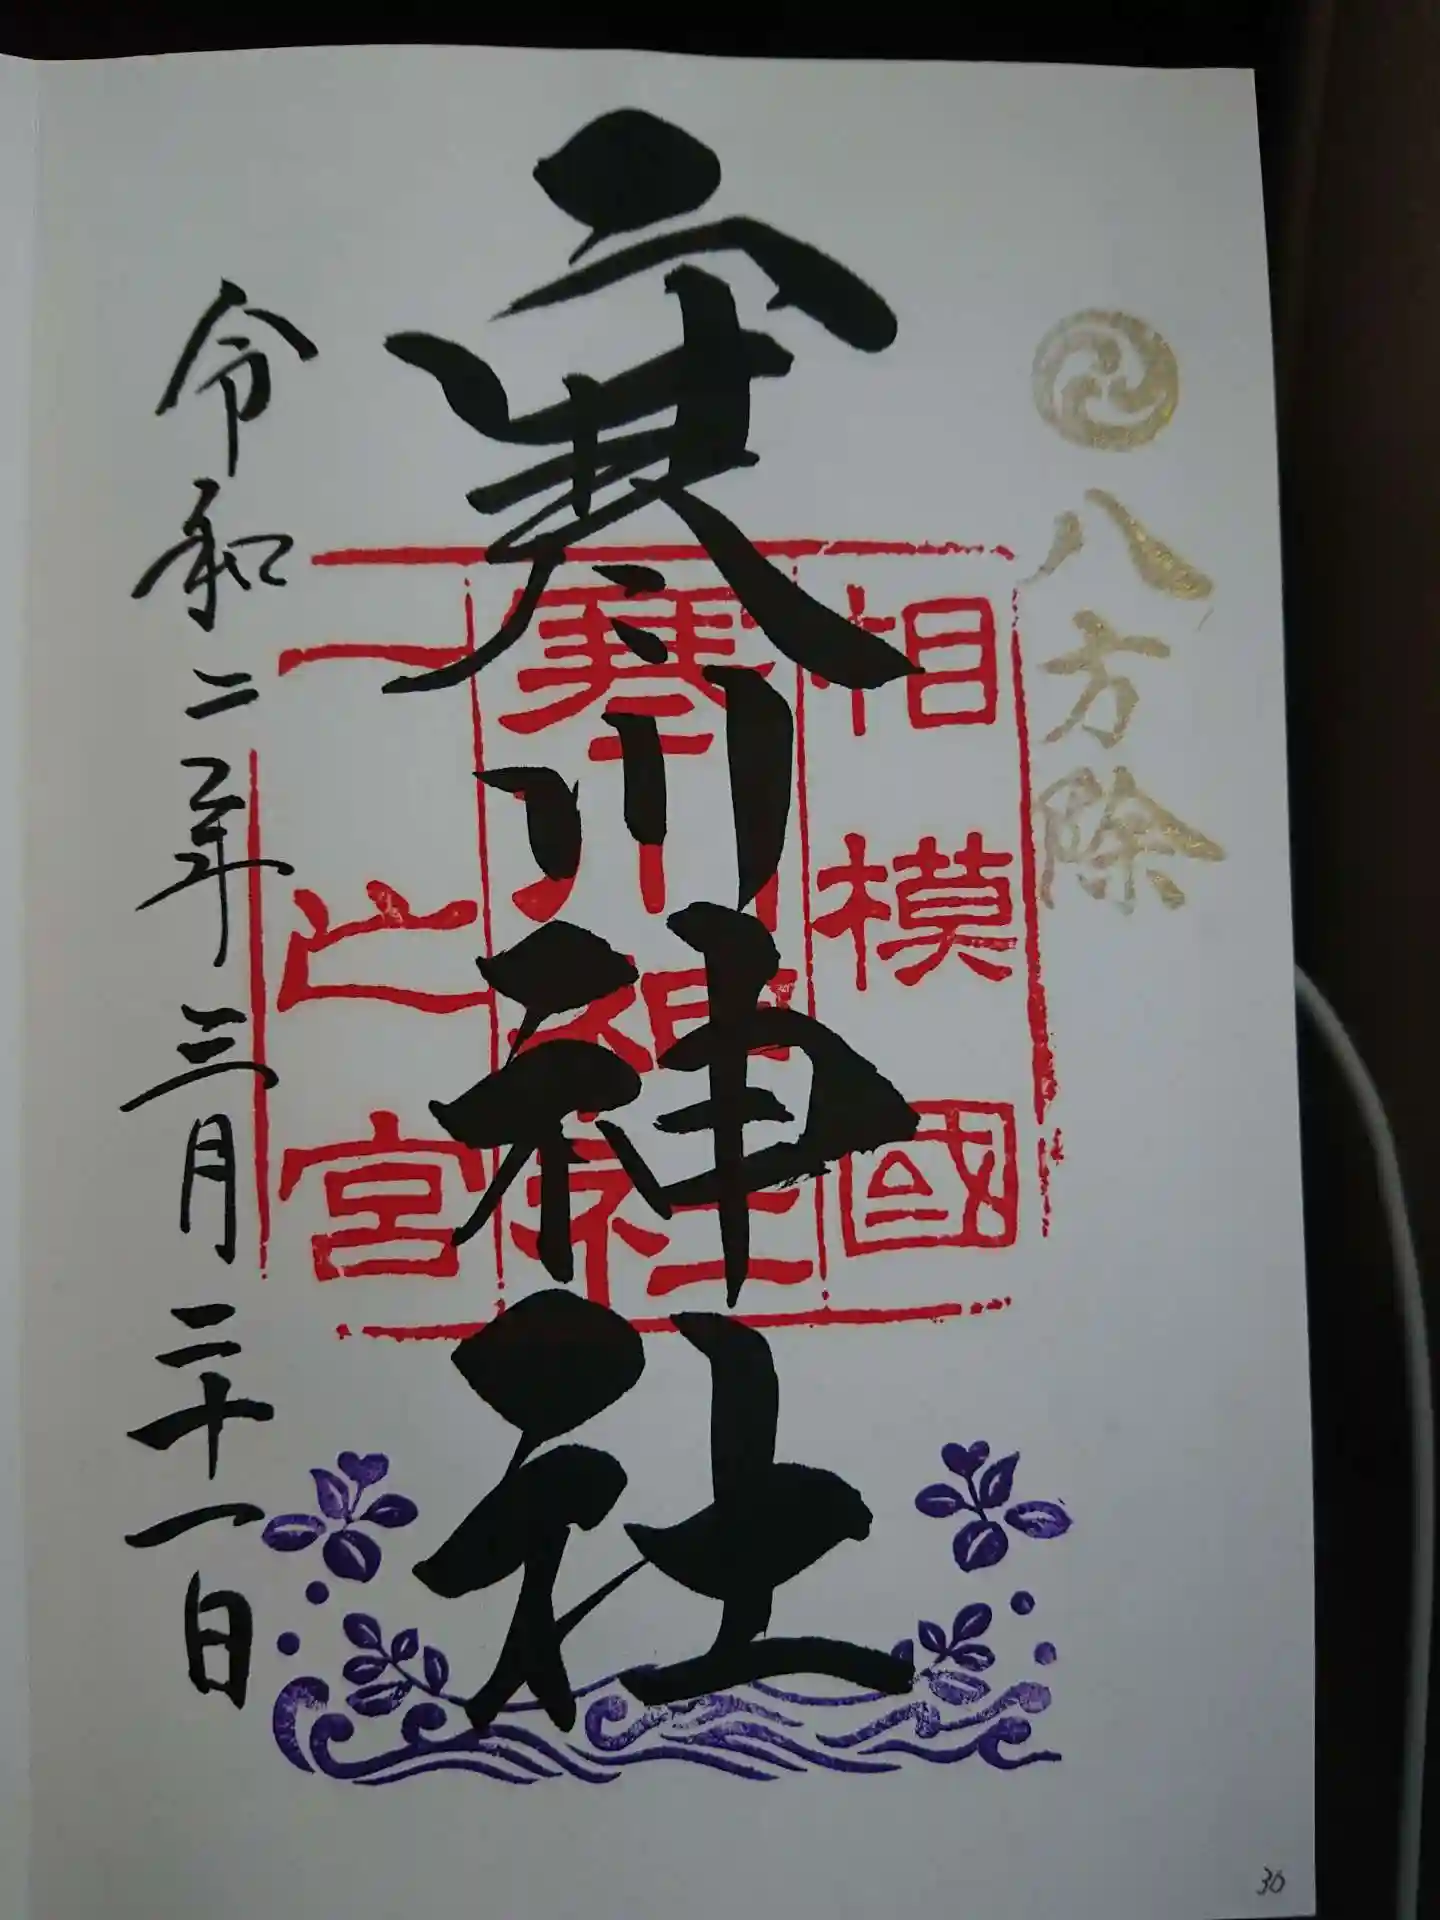 八方除
寒川神社
相模國
寒川神社
一之宮
令和二年三月二十一日
30